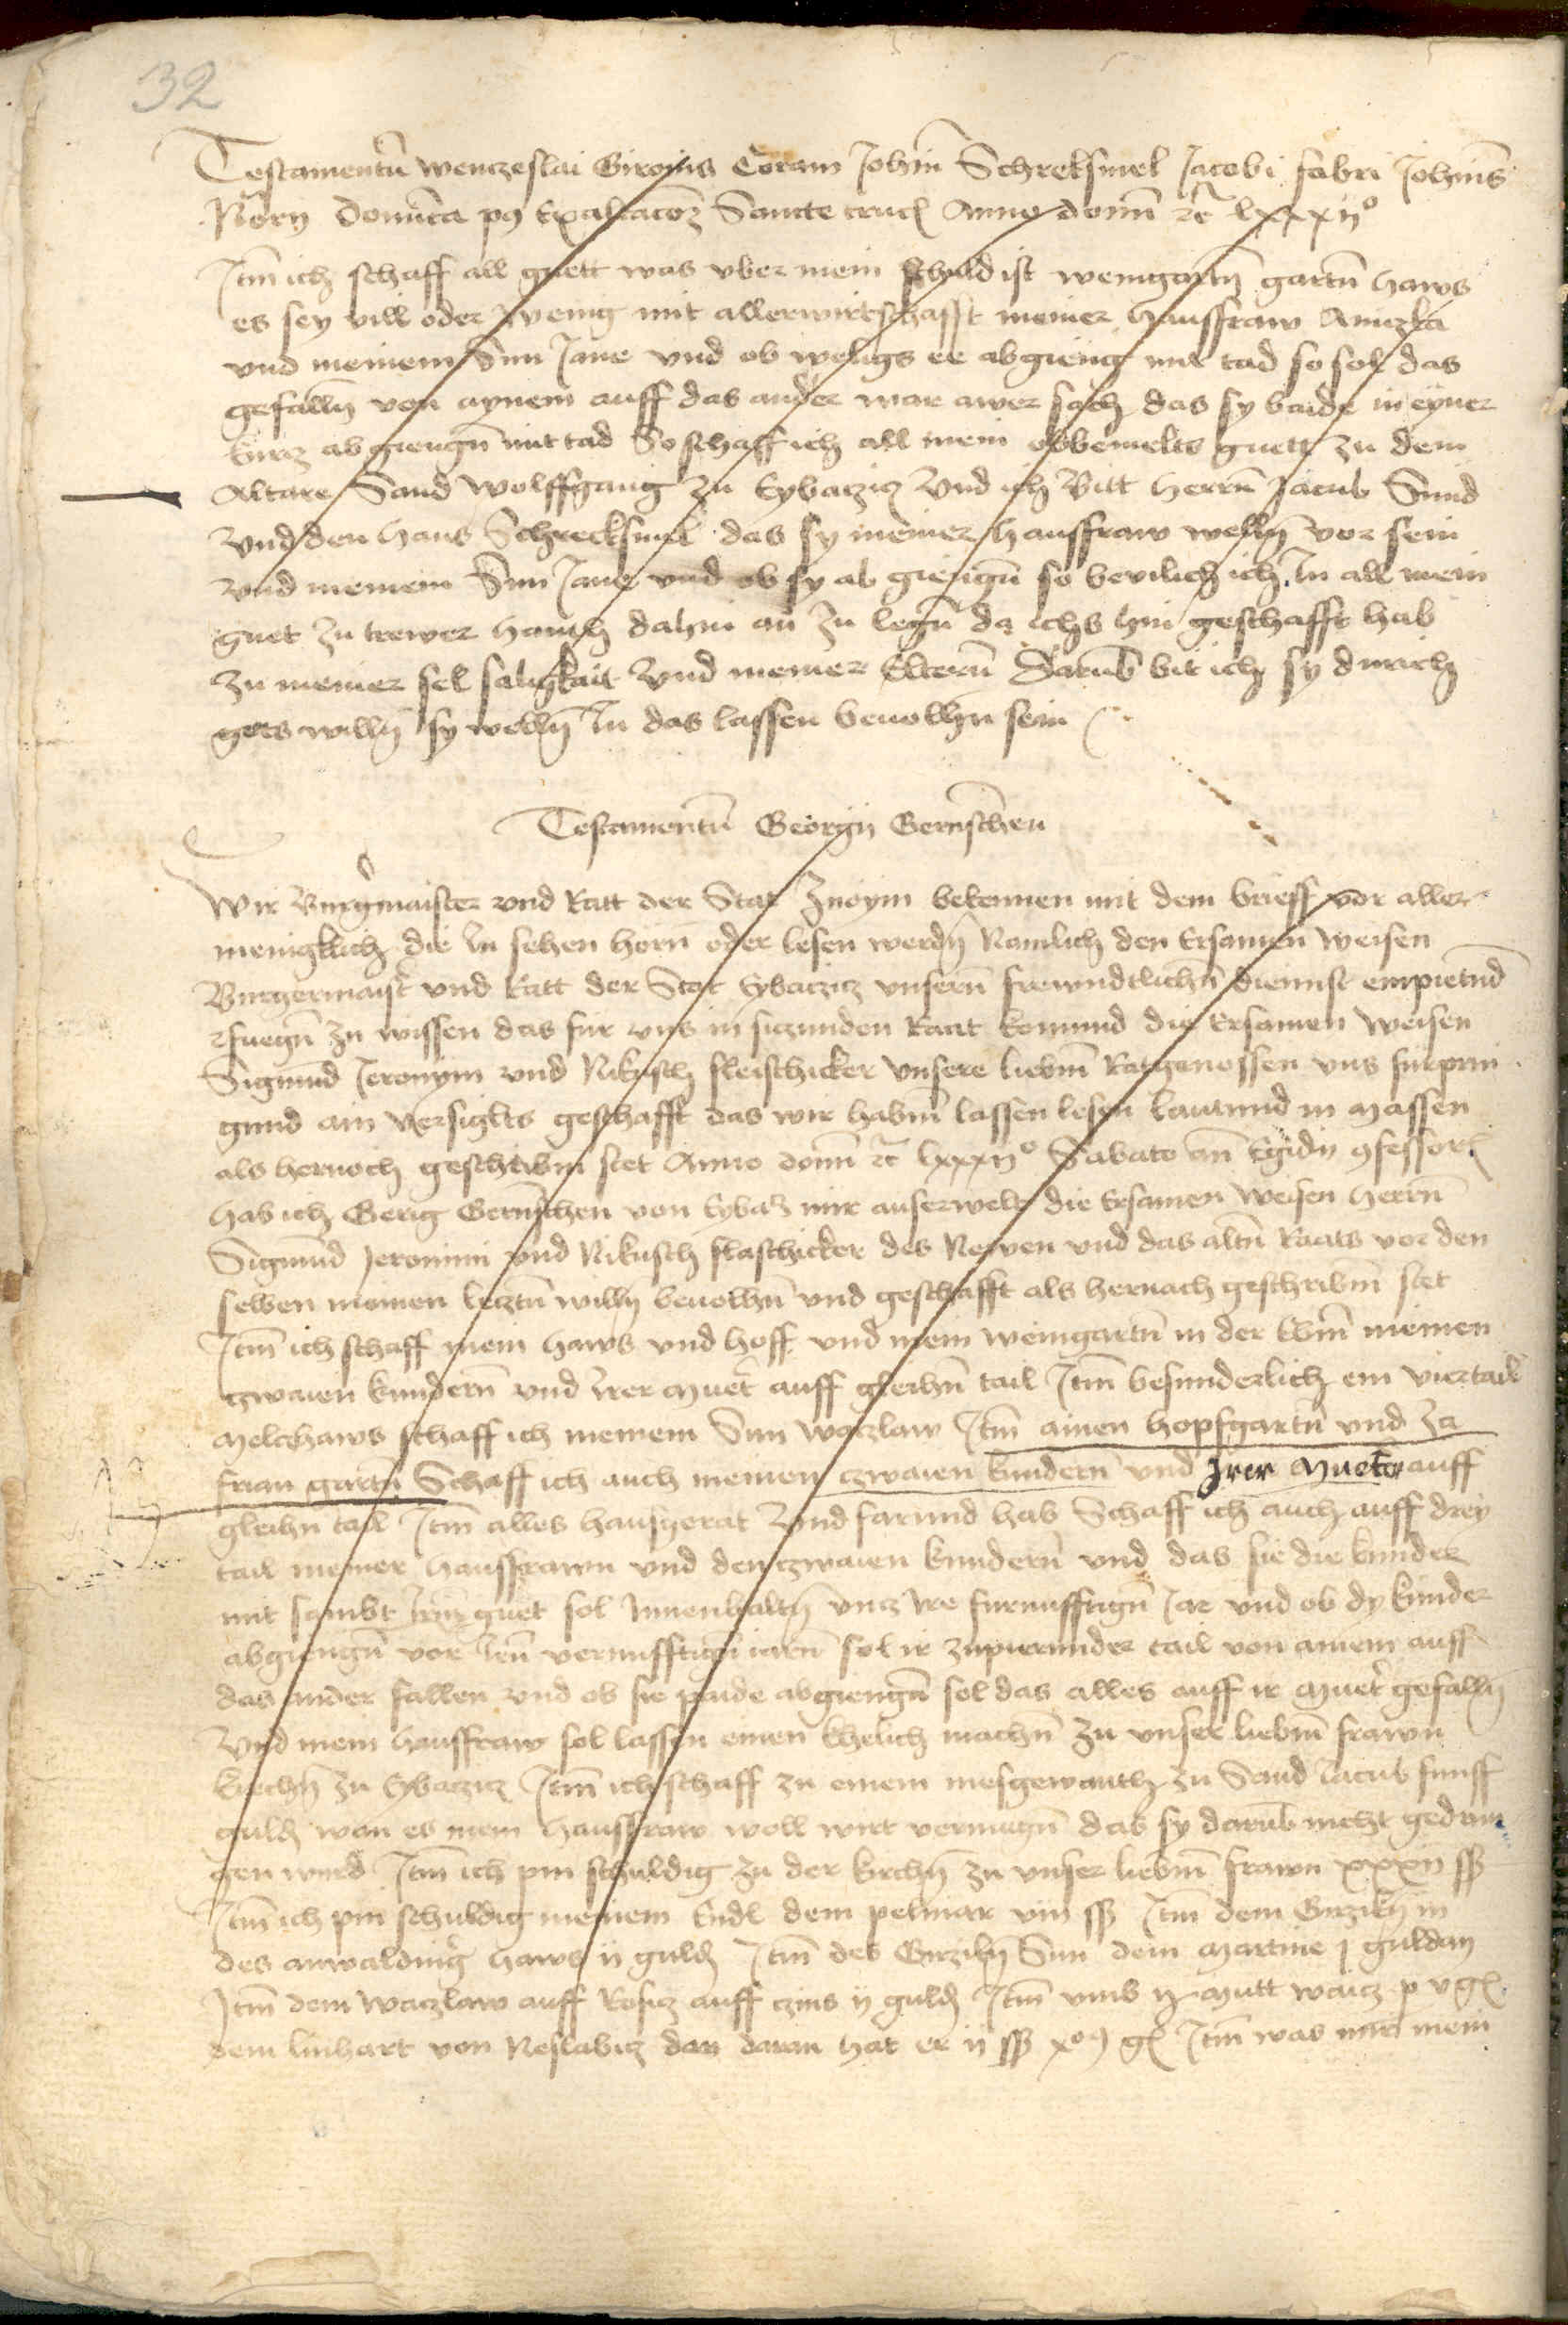 32
Testamentu͂ wenczeslai Girouis Coram Joh͂m Schreksmel Jacobi fabri Joh͂nis
Nörn Domi͂ca p9 Exaltac͂oz Sancte cruc͂ Anno domi͂ ꝛc͂ lxxxij°
Jtm͂ ich schaff all guett was vber mein schuld ist weingartn͂ gartn͂ haws
es sey vill oder wenig mit allerwirtschafft meiner hausfraw Aniczka
vnd meinem Sun Jane vnd ob weligs ee abgieng mit tad so sol das
gefalln͂ von aynem auff das ander war awer sach das sy baide in eyner
kurcz ab giengn͂ mit tad So schaff ich all mein obbemelts guett zu dem
Altare Sand wolffgang zu Eybaczicz vnd ich Bitt herrn͂ Jacub Smid
vnd den Hans Schrecksmel das sy meiner hausfraw welln͂ vor sein
vnd meinem Sun Jane vnd ob sy ab giengn͂ so bevilich ich Jn all mein
guet zu trewer hanth dahin an zu legn͂ da ichs hin geschafft hab
zu meiner sel saligkait vnd meiner Eltern͂ Daru͂b bit ich sy durich
gots willn͂ sy welln͂ Jn das lassen beuolhn sein
Testamentu͂ Georgij Gernschen
Wir Burgmaister vnd Ratt der Stat Znoym bekennen mit dem brieff vor aller
menigklich die Jn sehen horn͂ oder lesen werdn͂ Namlich den Ersamen weisen
Burgermaist͂ vnd Ratt der Stat Eybaczicz vnsern͂ frewndtlichn͂ dinnst empietnd͂
ꝛ fuegn͂ zu wissen das fur vns in siczunden Raat komund die Ersamen weisen
Sigmu͂d Jeronym vnd Nikusch fleischicker vnsere liebm͂ Ratgenossen vns furprin
gund ain versiglts geschafft das wir habm͂ lassen lesen lautund in massen
als hernoch geschribm͂ stet Anno domi͂ ꝛc͂ lxxxij° Sabato an͂ Egidij 9fessor͂
hab ich Gerig Gernschen von Eybacz mir auserwelt die Ersamen weisen herrn͂
Sigmu͂d Jeronimi vnd Nikusch flaschicker des Newen vnd das altn͂ Raats vor den
selben meinen lecztn͂ willn͂ beuolhn͂ vnd geschafft als hernach geschribm͂ stet
Jtm͂ ich schaff mein haws vnd hoff vnd mein weingartn͂ in der meinen
zwaien kindern͂ vnd irer muet͂ auff gleihn͂ tail Jtm͂ besunderlich ein viertail
melczhaws schaff ich meinem Sun waczlaw Jtm͂ ainen hopfgartn͂ vnd Za
frian gartn͂ Schaff ich auch meinen czwaien kindern͂ vnd Jrer Mueter auff
gleihn tail Jtm͂ alles hausgerat vnd farund hab Schaff ich auch auff drey
tail meiner hausfrawn vnd den czwaien kindern͂ vnd das sie die kinder
mit sambt irm͂ guet sol Jnnenhaltn͂ vncz Jre furnufftign͂ Jar vnd ob dy kinder
abgiengn͂ vor irn͂ vernufftign͂ iarn͂ sol ir zupurunder tail von ainem auff
das ander fallen vnd ob sie paide abgiengn͂ sol das alles auff ir muet͂ gefalln͂
vnd mein hausfraw sol lassen einen khelich machn͂ zu vnser liebm͂ frawn
kirchn͂ zu Eybaczicz Jtm͂ ich schaff zu einem mesgewanth zu Sand Jacub funff
guld͂ wan es mein hausfraw woll wirt vermugn͂ das sy daru͂b nicht gedrun
gen wurd Jtm͂ ich pin schuldig zu der kirchn͂ zu vnser liebm͂ frawn xxxij ss
Jtm͂ ich pin schuldig meinem Endl dem pelmar viij ss Jtm͂ dem Girzikn͂ in
des anwalding͂ haws ij guld͂ Jtm͂ des Girzikn͂ Sun dem Martine j guldan
Jtm͂ dem waczlaw auff Rosicz auff czins ij guld͂ Jtm͂ vmb ij mutt waicz p v g͂
dem linhart von Neslabicz dar daran hat er ij ss g͂ Jtm͂ was mir mein